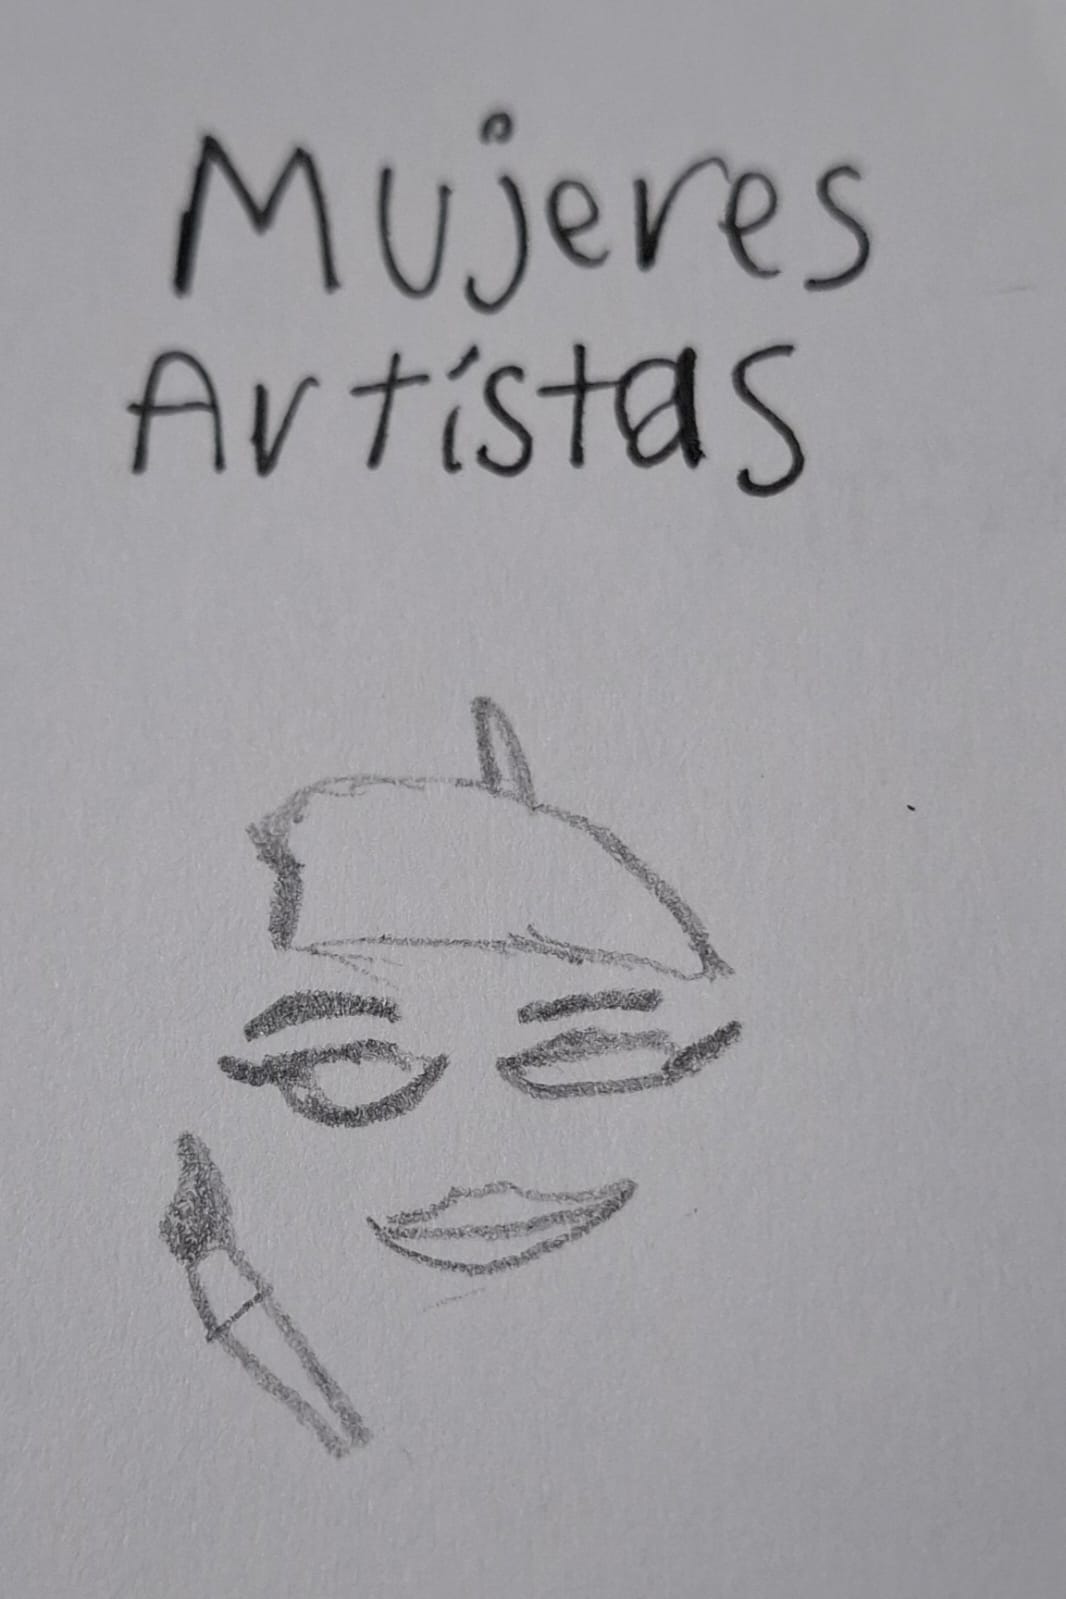 Mujeres
Artistas